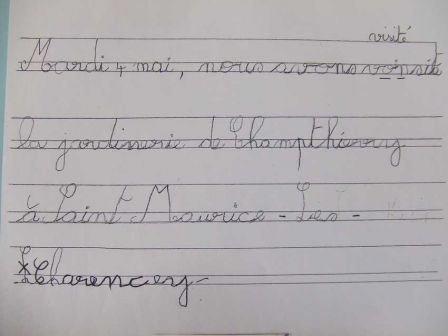 visité
Mardi 4 mai, nous avons voipsité
la jardinerie de Champthierry
à Saint Maurice - Les -
Charencey